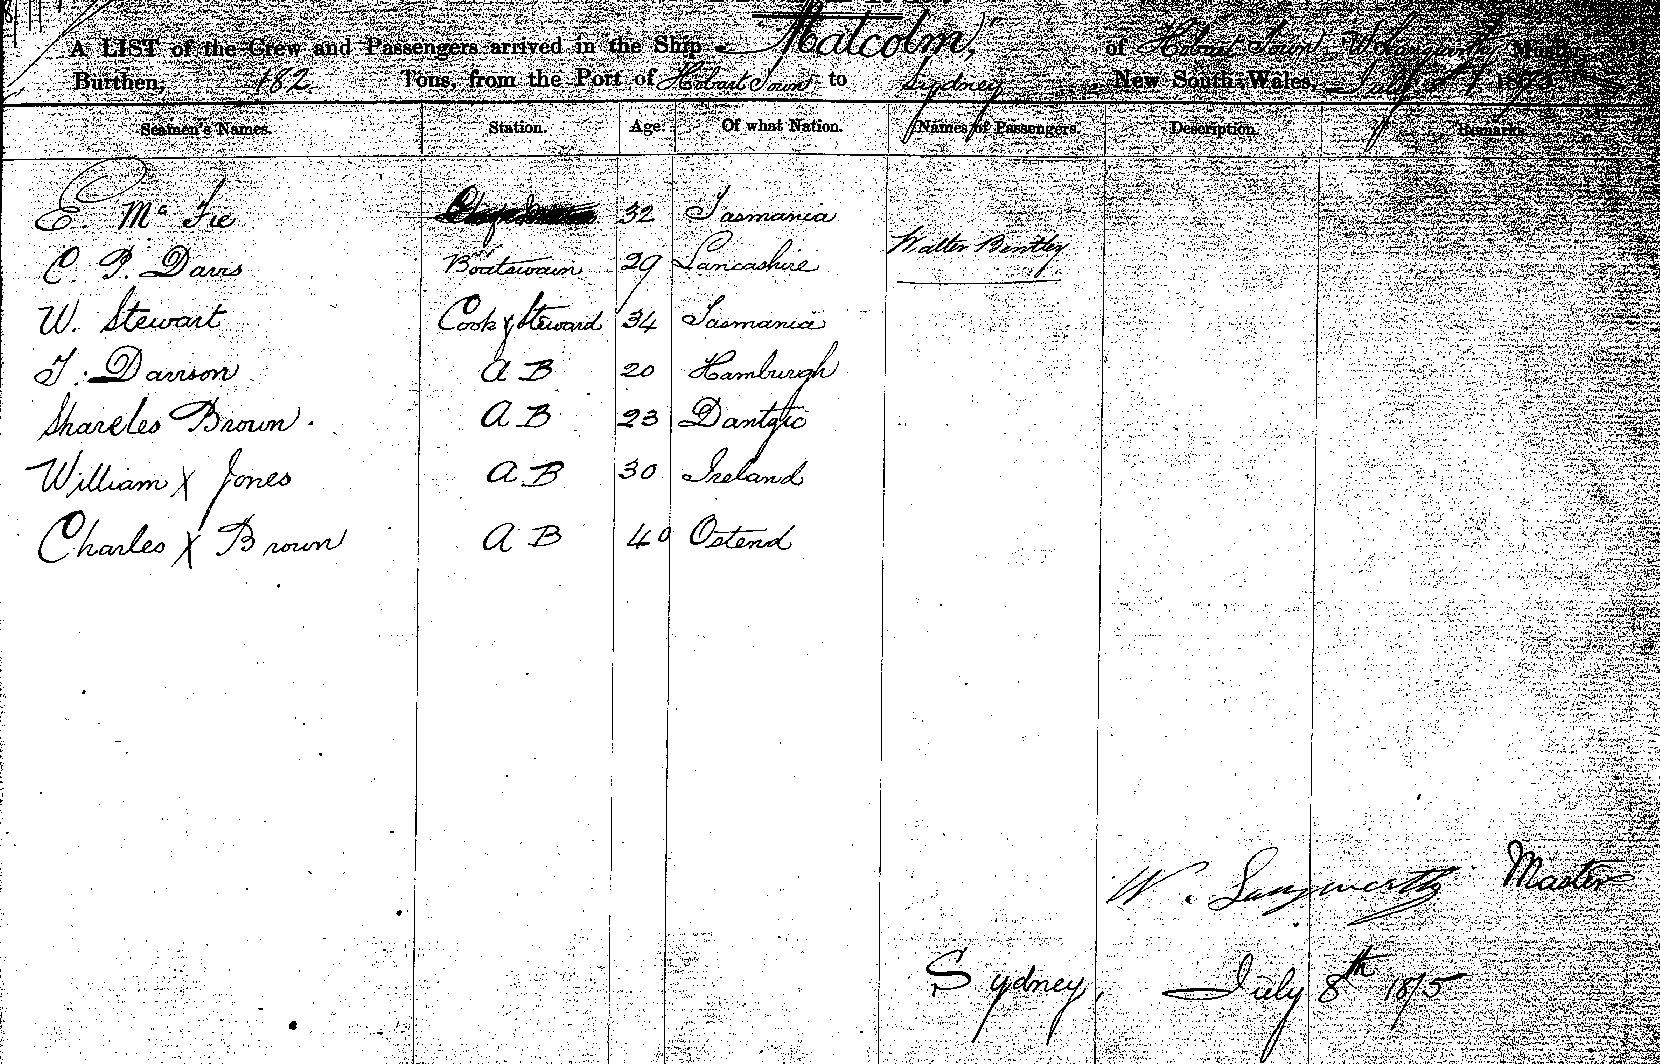 A LIST of the Crew and Passengers arrived in the Ship "Malcolm," of Hobart Town, W. Langworthy Master,
Burthen, 182 Tons, from the Port of Hobart Town to Sydney New South Wales, July
Seamen's Names. Station. Age. Of what Nation. Names of Passengers. Description. Remarks.
E. Mc Fie 32 Tasmania
Walter Bentley
C. P. Davis Boatswain 29 Lancashire
W. Stewart Cook & Steward 34 Tasmania
T. Davison A B 20 Hamburgh
Shareles Brown. A B 23 Dantzic
William X Jones A B 30 Ireland
Charles X Brown A B 40 Ostend
W. Langworthy Master
Sydney, July 8th 1875